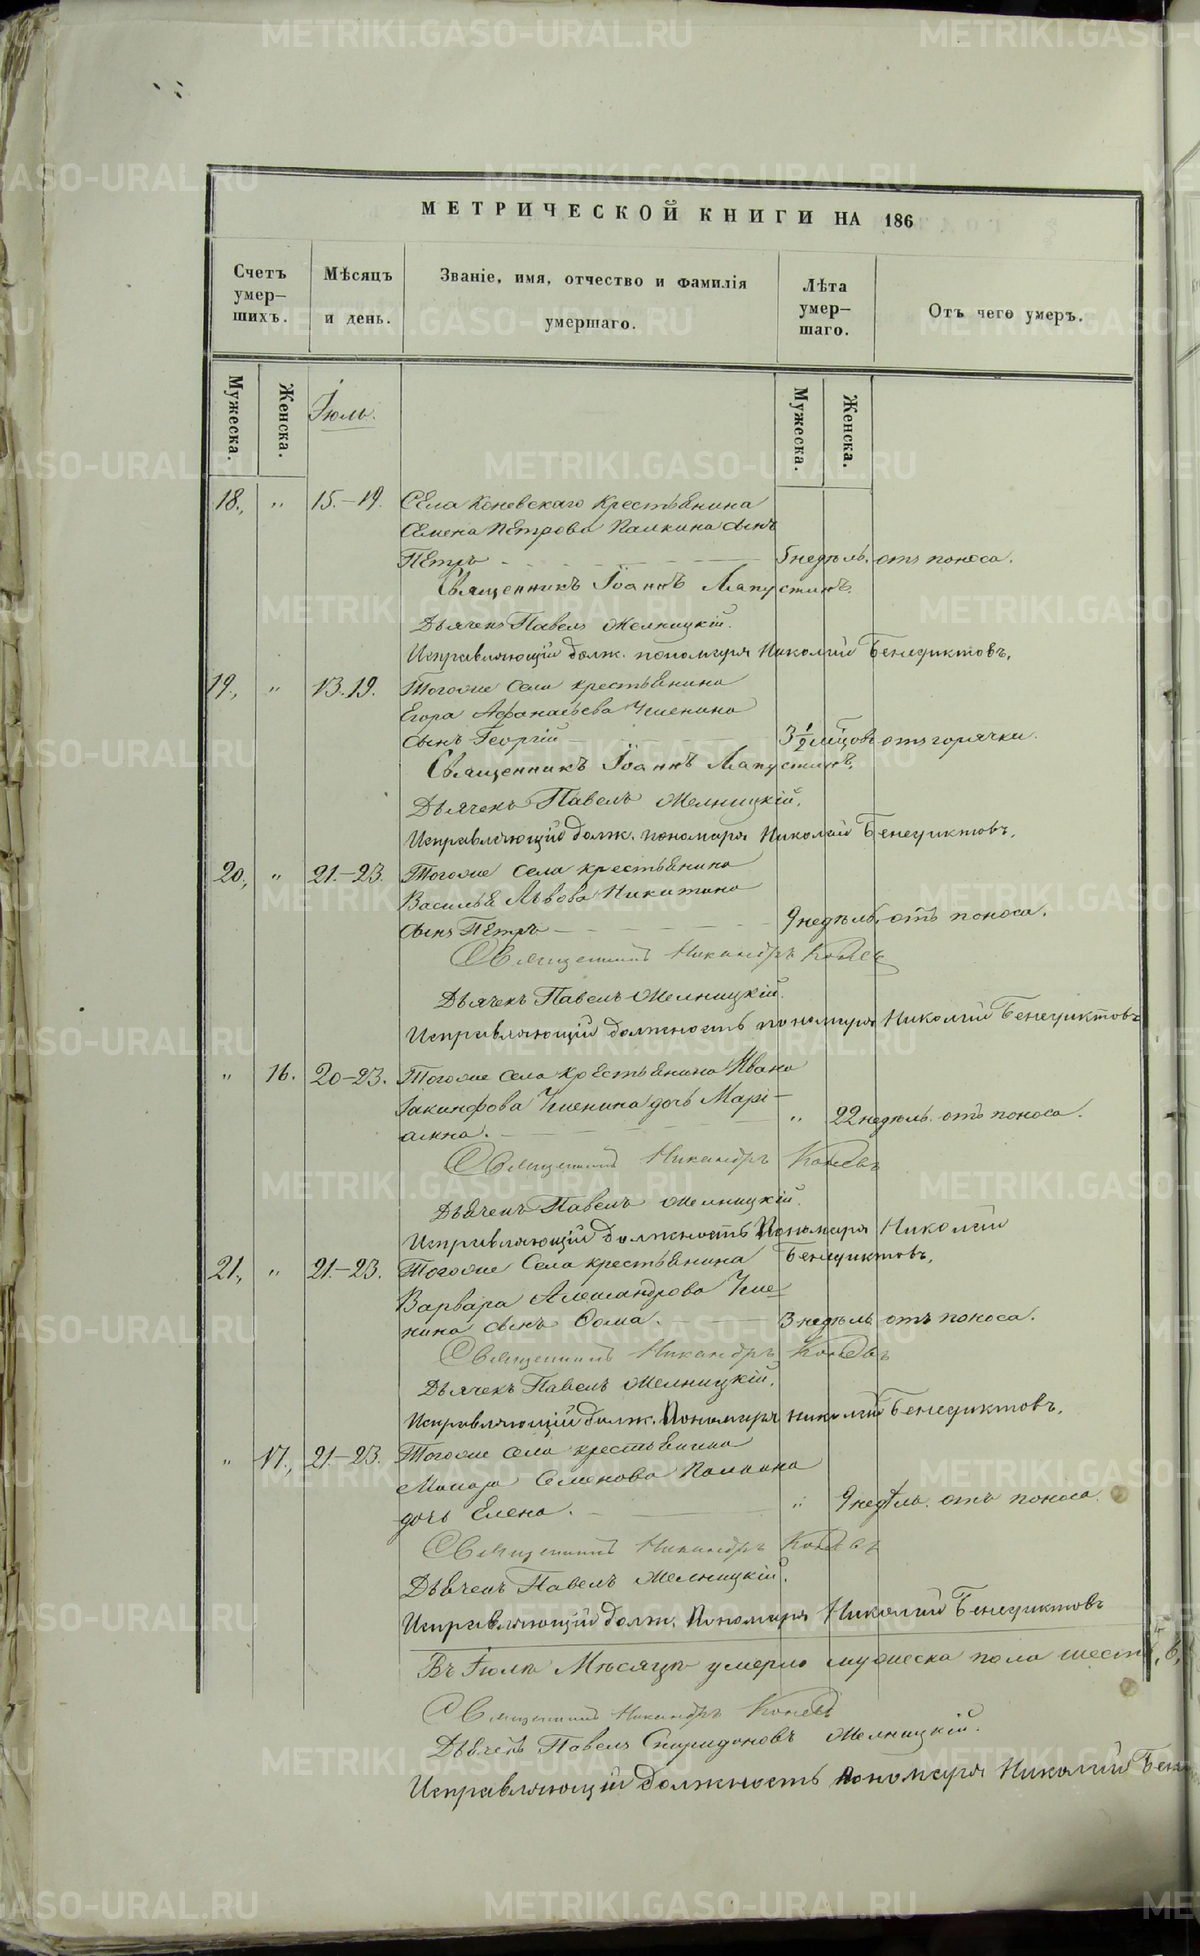 МЕТРИЧЕСКОЙ КНИГИ НА 186
Счетъ умер–шихъ.
Мѣсяцъ и день.
Званіе, имя, отчество и фамилія умершаго.
Лѣта умер–шаго.
Отъ чего умеръ.
Мужеска.
Женска.
Іюль.
Мужеска.
Женска.
18., " 15.–19. Села Коневскаго крестьянина
Семена Петрова Палкина сынъ
Петръ 5 недѣль. отъ поноса.
Священникъ Іоаннъ Лапустинъ.
Дьячекъ Павелъ Мелницкій.
Исправляющій долж. пономаря Николай Бенедиктовъ.
19., " 13.19. Тогоже села крестьянина
Егора Афанасьева
сынъ Георгій 3 1/2 мѣсцовъ отъ горячки.
Священникъ Іоаннъ Лапустинъ.
Дьячекъ Павелъ Мелницкій.
Исправляющій долж. пономаря Николай Бенедиктовъ.
20., " 21.–23. Тогоже села крестьянина
Василья Львова Никитина
сынъ Петръ 9 недѣль. отъ поноса.
Священникъ Никандръ Коневъ
Дьячекъ Павелъ Мелницкій.
Исправляющій должность пономаря Николай Бенедиктовъ
" 16. 20–23. Тогоже села крестьянина Ивана
Іакинфова дочь Марі–
амна. " 22 недѣль. отъ поноса.
Священникъ Никандръ Коневъ
Дьячекъ Павелъ Мелницкій.
Исправляющій должность Пономаря Николай
Бенедиктовъ.
21., " 21.–23. Тогоже Села крестьянина
Варвара Александрова
нина сынъ Фома. 3 недѣль отъ поноса.
Священникъ Никандръ Коневъ
Дьячекъ Павелъ Мелницкій.
Исправляющій долж. Пономаря Николай Бенедиктовъ.
" 17., 21.–23. Тогоже села крестьянина
Макара Семенова Палкина
дочь Елена. " 9 недѣль. отъ поноса.
Священникъ Никандръ Коневъ
Дьячекъ Павелъ Мелницкій.
Исправляющій долж. Пономаря Николай Бенедиктовъ
Въ Іюлѣ Мѣсяцѣ умерло мужеска пола шесть, 6,
Священникъ Никандръ Коневъ
Дьячекъ Павелъ Спиридоновъ Мелницкій.
Исправляющій должность пономаря Николай
METRIKI.GASO-URAL.RU